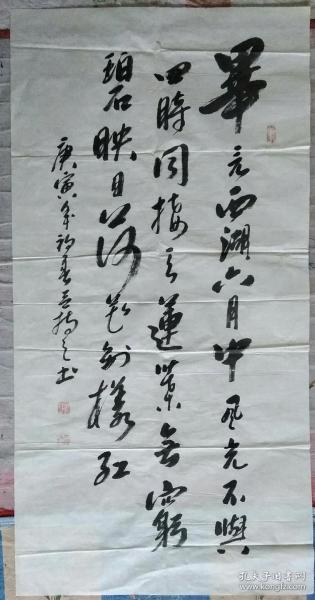 畢竟西湖六月中風光不與
四時同接天蓮葉無窮
碧映日荷花别樣红
庚寅年初春
书
孔夫子旧书网